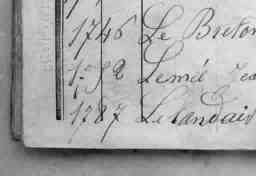 1746 Le Breton
Lemée Jea
1787 Lelandais